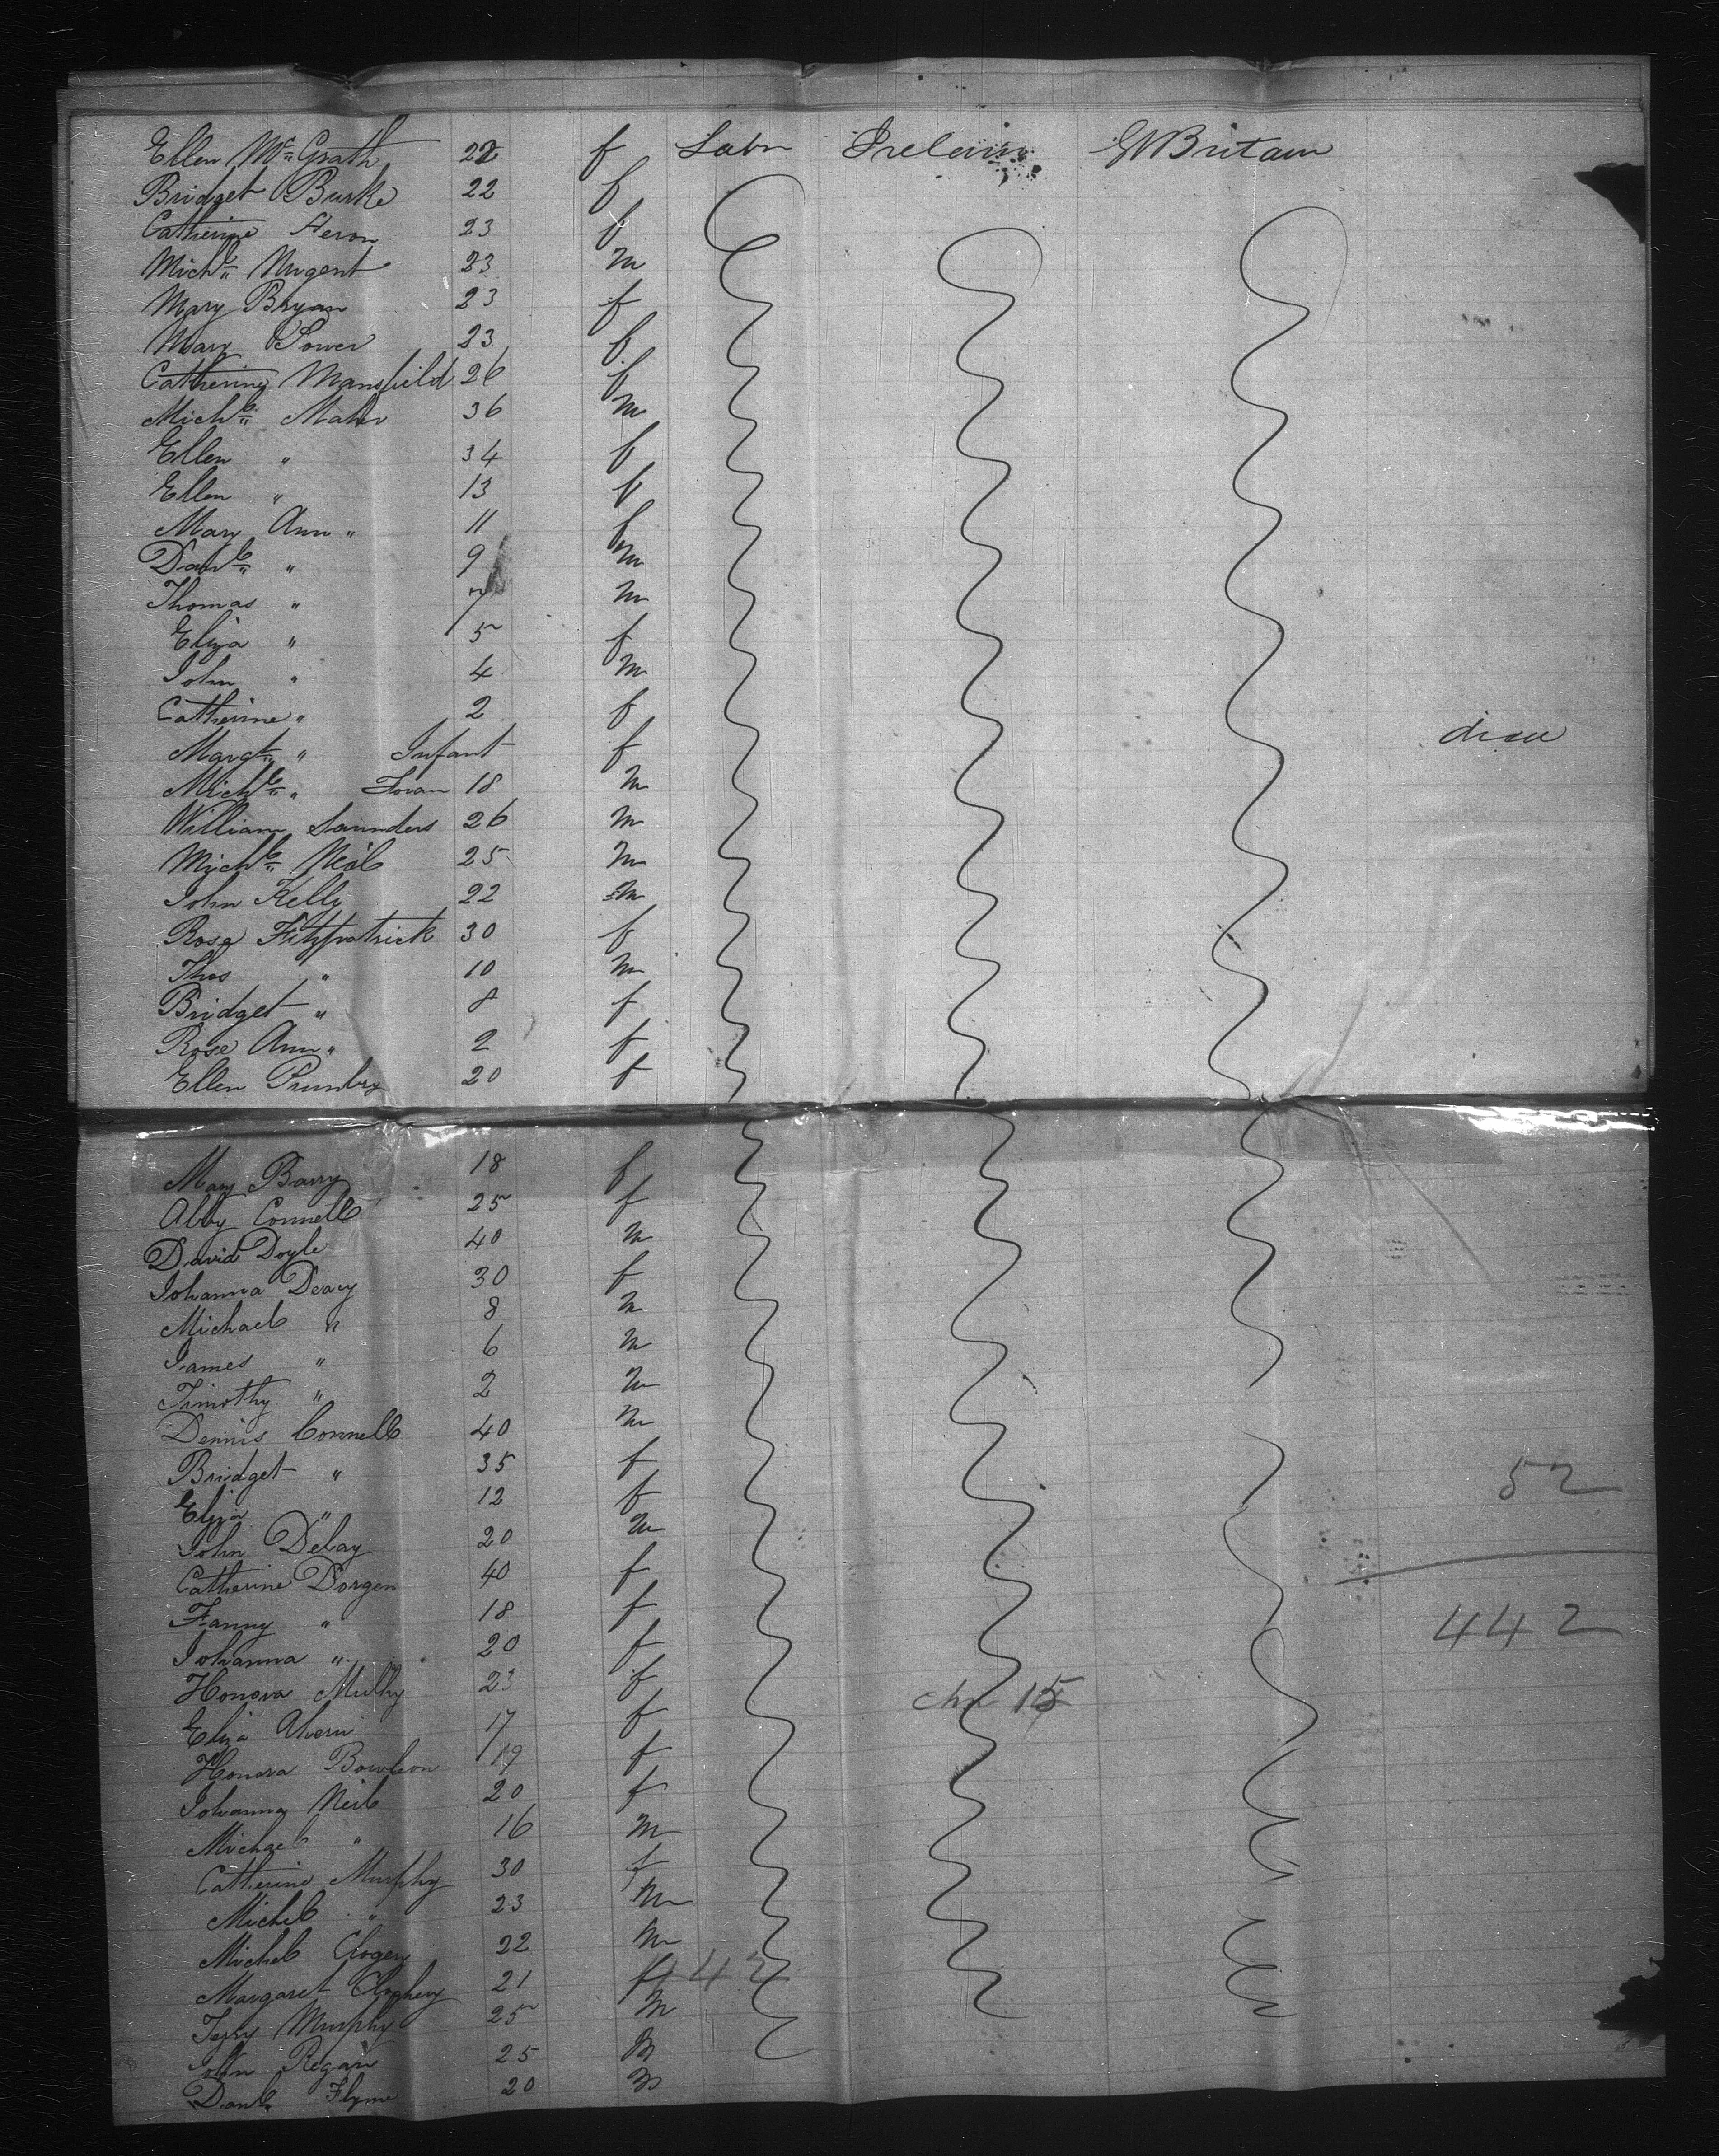 Ellen McGrath 22 f Labr Ireland Gt Britain
Bridget Burke 22 f
Catherine Heron 23 f
Michl Nugent 23 m
Mary Bryan 23 f
Mary Power 23 f
Catherine Mansfield 26 f
Michl Maher 36 m
Ellen " 34 f
Ellen " 13 f
Mary Ann " 11 f
Danl " 9 m
Thomas " 7 m
Eliza " 5 f
John " 4 m
Catherine " 2 f
Margt " Infant f died
Michl " Foran 18 m
William Saunders 26 m
Michl Neil 25 m
John Kelly 22 m
Rose Fitzpatrick 30 f
Thos " 10 m
Bridget " 8 f
Rose Ann " 2 f
Ellen 20 f
Mary Barry 18 f
Abby Connell 25 f
David Doyle 40 m
Johanna Deacy 30 f
Michael " 8 m
James " 6 m
Timothy " 2 m
Dennis Connell 40 m
Bridget " 35 f 52
Eliza " 12 f
John Delay 20 m
Catherine Dorgen 40 f
Fanny " 18 f 442
Johanna " 20 f
Honora 23 f 15
Eliza Ahern 17 f
Honora 19 f
Johanna Neil 20 f
Michael " 16 m
Catherine Murphy 30 f
Michel " 23 m
Michel 22 m
Margaret 21 f
Murphy 25 m
John Regan 25 m
Danl Flynn 20 m